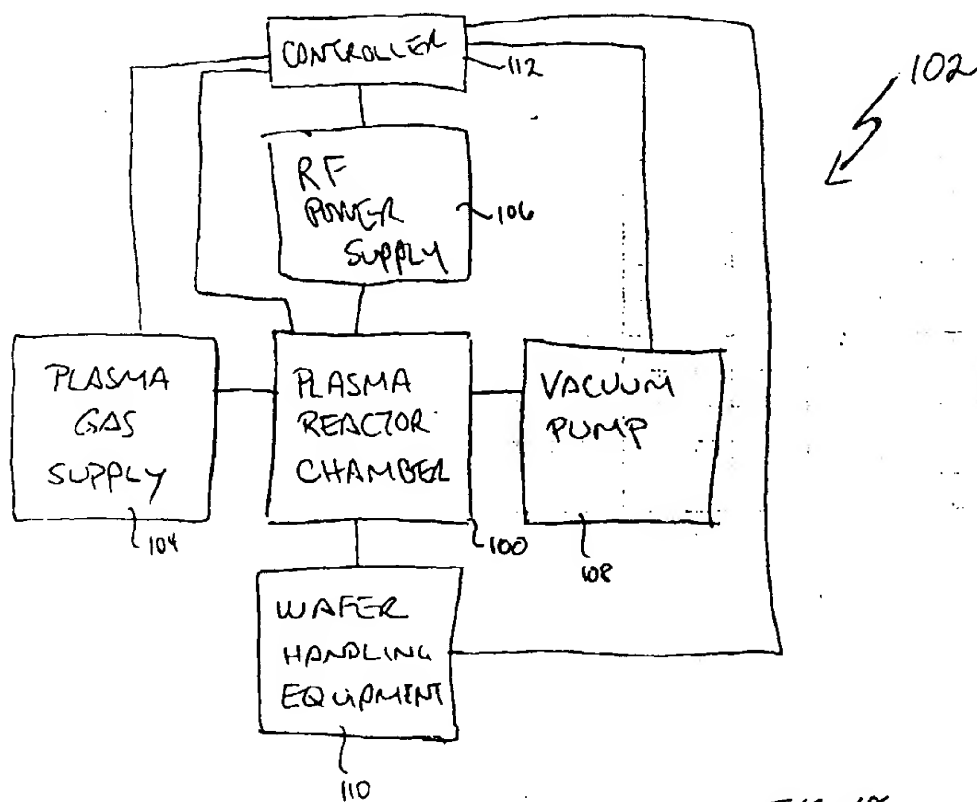 CONTROLLER
112
102
RF
POWER
SUPPLY
106
PLASMA
GAS
SUPPLY
104
PLASMA
REACTOR
CHAMBER
100
VACUUM
PUMP
108
WAFER
HANDLING
EQUIPMENT
110